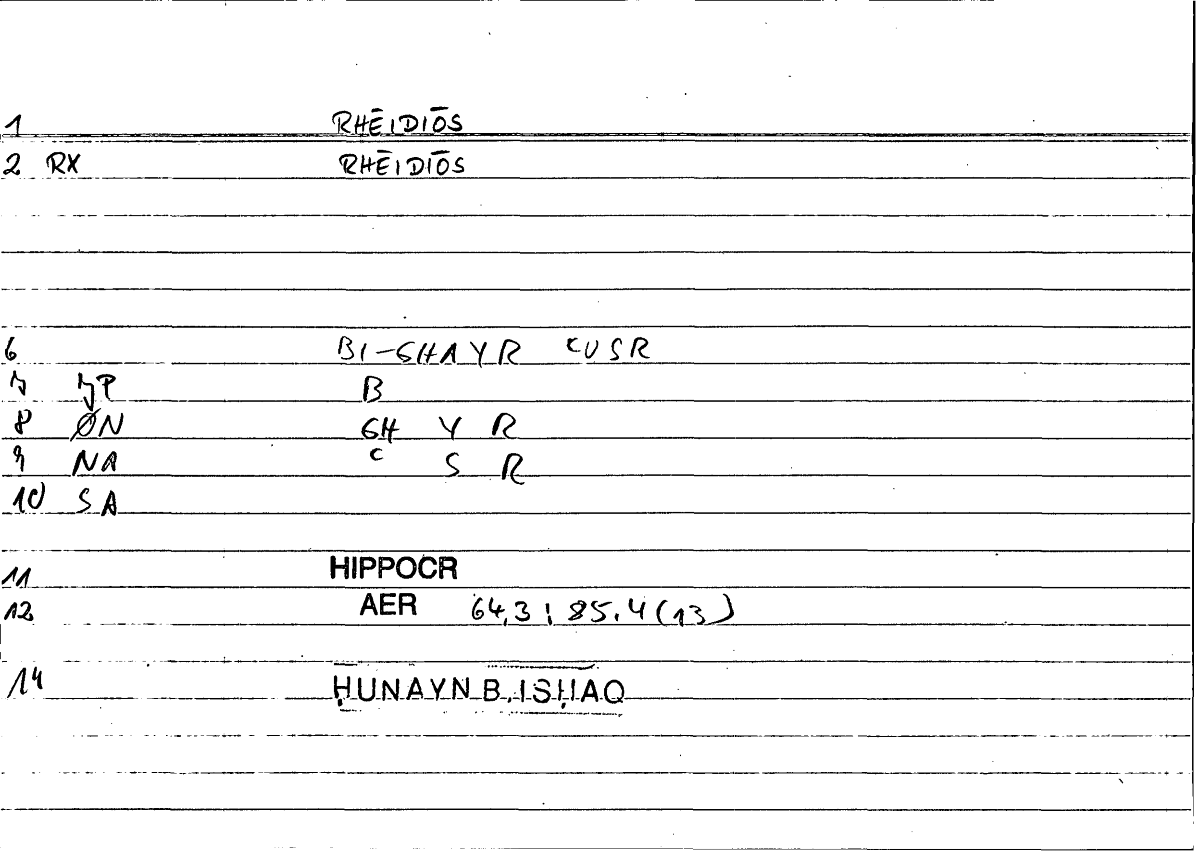 1 RHĒIDIŌS
2 RX RHĒIDIŌS
6 BI-GHAYR ʿUSR
7 JP B
8 ØN GH Y R
9 NA ʿ S R
10 SA
11 HIPPOCR
12 AER 64,3; 85,4(13)
14 ḤUNAYN B. ISḤAQ